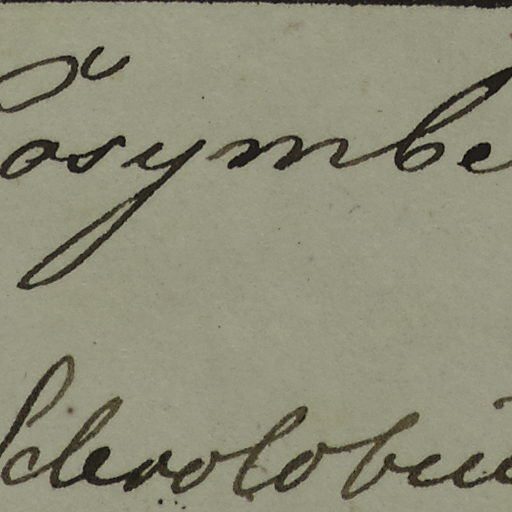 osymbe
Sclerolobiu